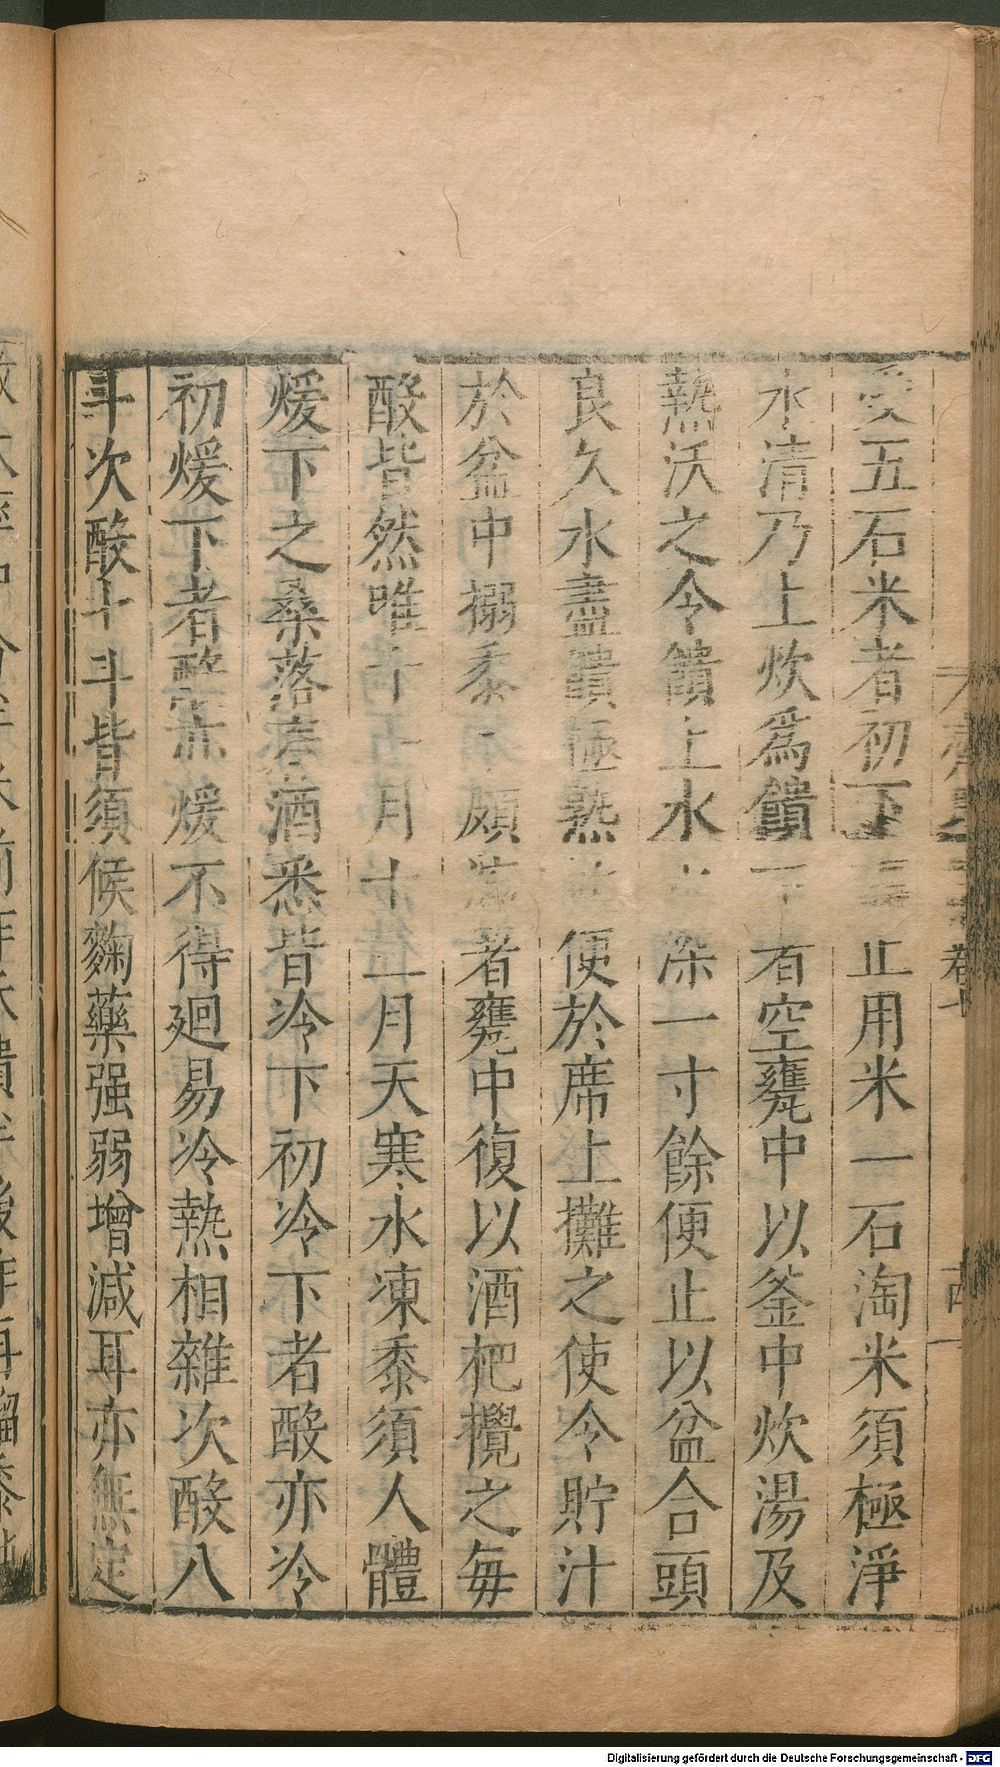 受五石米者初下 止用米一石淘米須極淨
水清乃上炊爲饙下 著空甕中以釜中炊湯及
熱沃之令饙上水 深一寸餘便止以盆合頭
良久水盡饙極熟 便於席上攤之使令貯汁
於盆中搦黍 頗 著甕中復以酒杷攪之每
酘皆然唯十一月十二月天寒水凍黍須人體
煖下之桑落春酒悉皆冷下初冷下者酘亦冷
初煖下者酘亦煖不得廻易冷熱相雜次酘八
斗次酘七斗皆須候麴蘗强弱增減耳亦無定
卷七
Digitalisierung gefördert durch die Deutsche Forschungsgemeinschaft - DFG